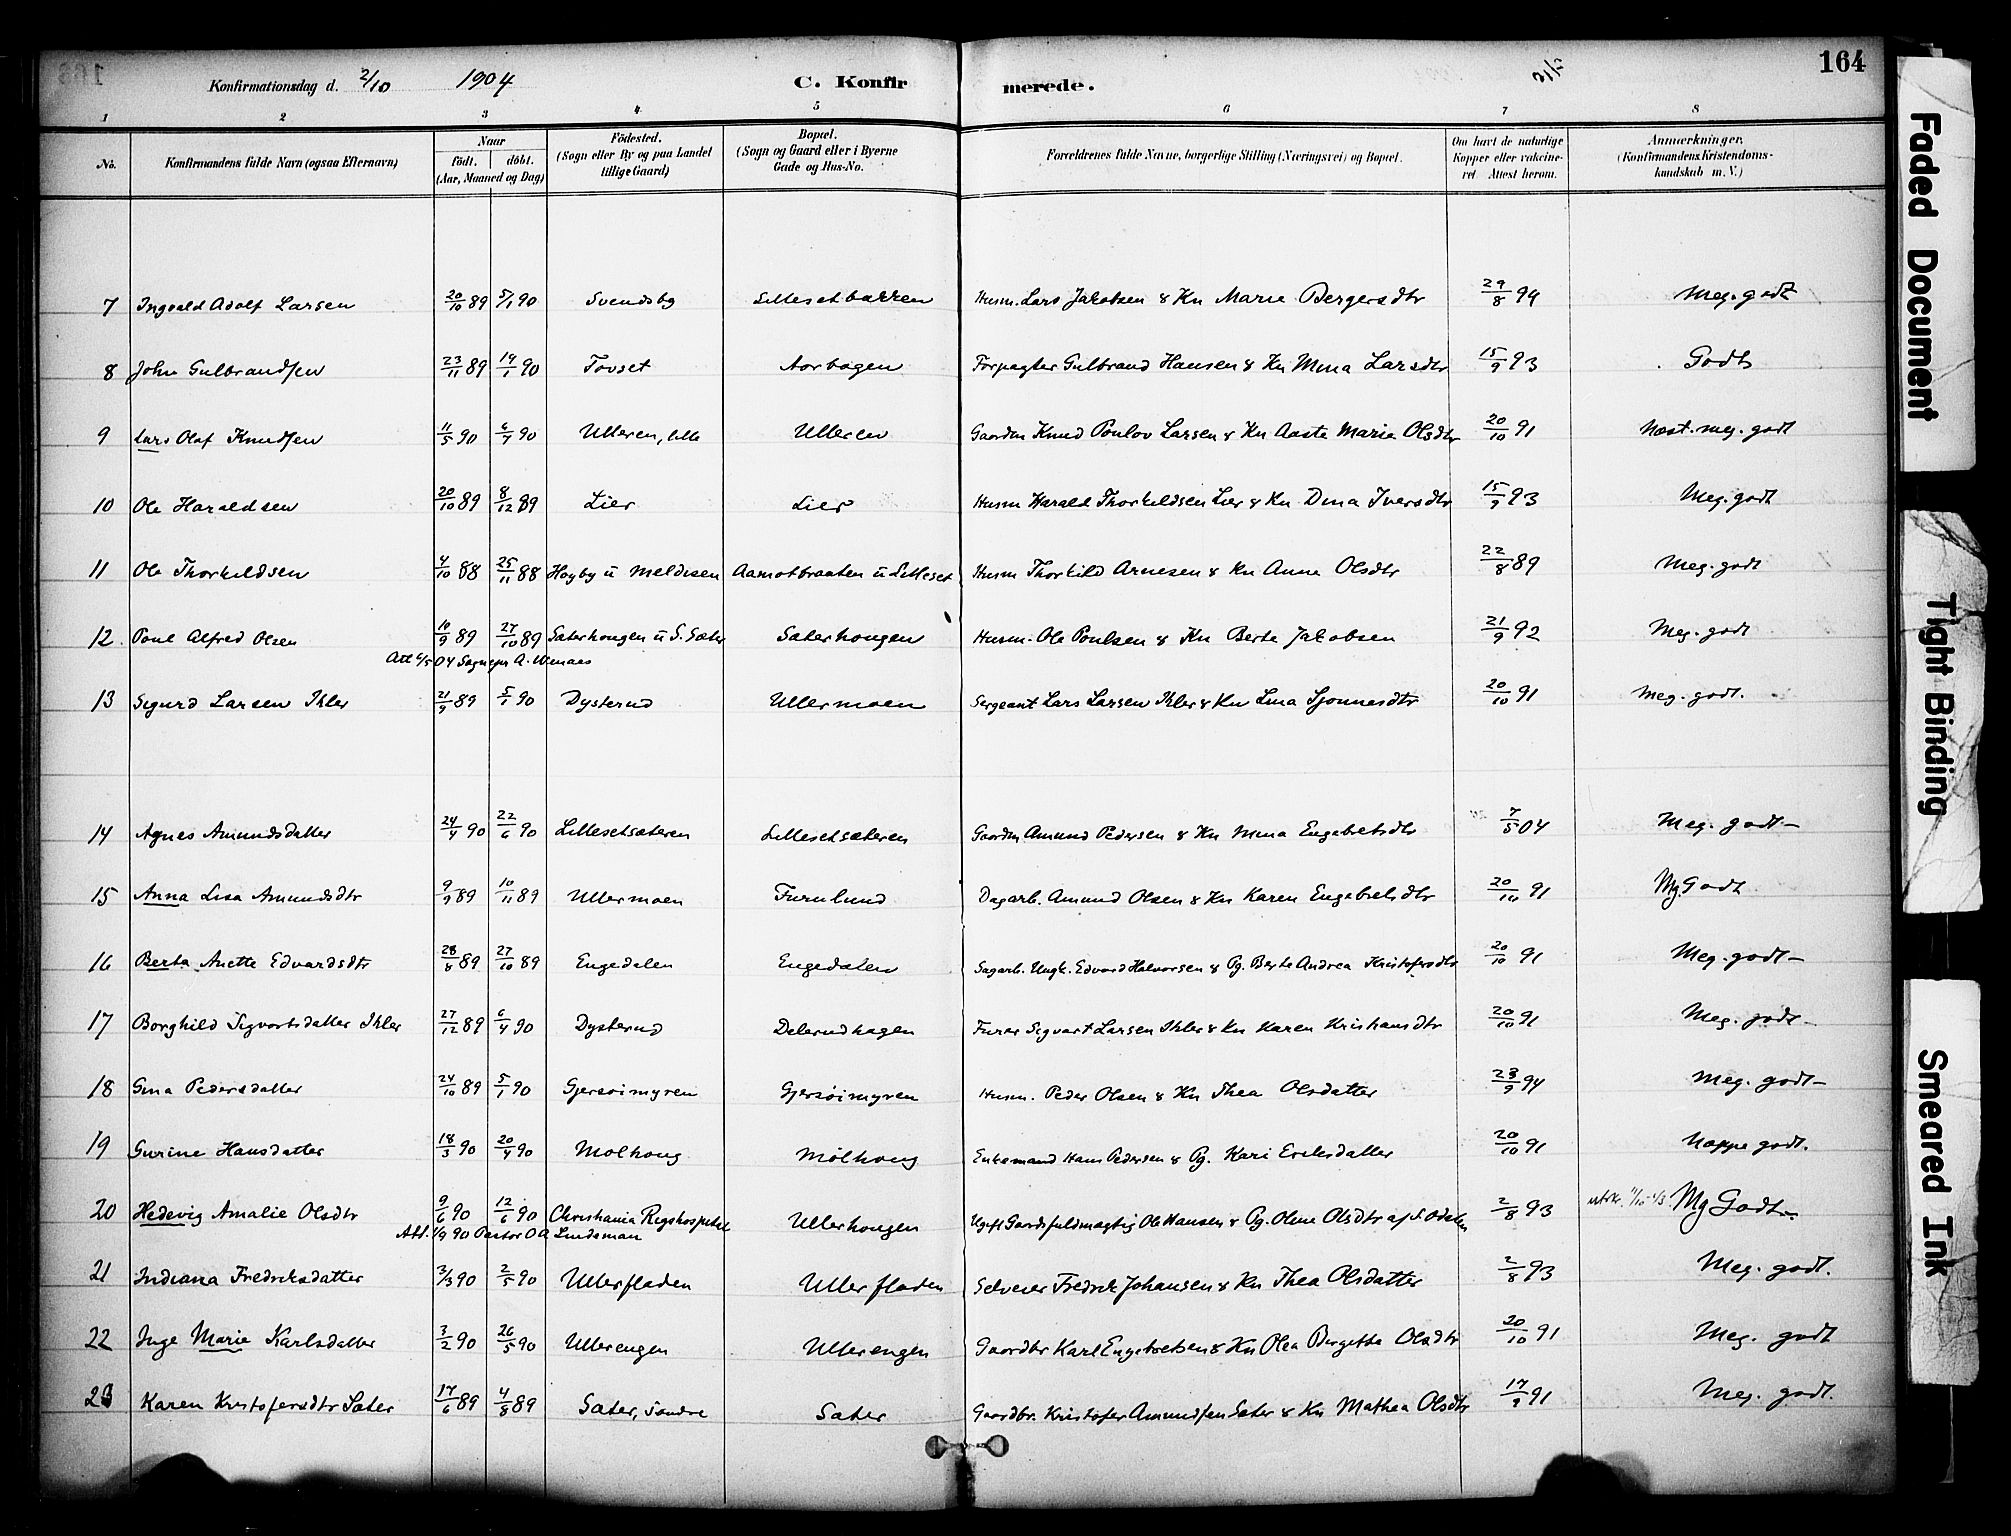 Konfirmationsdag d. 2/10 1904 C. Konfirmerede. 2/10 164
1 2 3 4 5 6 7 8
No. Konfirmandens fulde Navn (ogsaa Efternavn) Naar født. døbt. (Aar, Maaned og Dag) Födested. (Sogn eller By og paa Landet tillige Gaard) Bopæl. (Sogn og Gaard eller i Byerne Gade og Hus-No. Forældrenes fulde Navne, borgerlige Stilling (Næringsvei) og Bopæl. Om havt de naturlige Kopper eller vakcineret. Attest herom. Anmærkninger. (Konfirmandens Kristendomskundskab m. V.)
7 Ingvald Adolf Larsen 20/10 89 5/1 90 Svendsby Lillesetbakken Husm. Lars Jakobsen & Kn Marie Bergersdtr 29/8 94 Meg. godt
8 John Gulbrandsen 23/11 89 19/1 90 Tovset Aarbogen Forpagter Gulbrand Hansen & Kn Mina Larsdtr 15/9 93 Godt
9 Lars Olaf Knudsen 11/5 90 6/7 90 Ulleren, lille Ulleren Gaardm Knud Poulov Larsen & Kn Aaste Marie Olsdtr 20/10 91 Næst. meg. godt
10 Ole Haraldsen 20/10 89 8/12 89 Lier Lier Husm Harald Thorkildsen Lier & Kn Dina Iversdtr 15/9 93 Meg. godt
11 Ole Thorkildsen 4/10 88 25/11 88 Høyby u Meldisen Aamotbraaten u Lilleset Husm Thorkild Arnesen & Kn Anne Olsdtr 22/8 89 Meg. godt
12. Poul Alfred Olsen 10/9 89 27/10 89 Sæterhougen u S. Sæter Sæterhougen Husm. Ole Poulsen & Kn Berte Jakobsen 21/9 92 Meg. godt
Att 6/5 04 Sognepr A. Wenaes
13 Sigurd Larsen Ihler 21/9 89 5/1 90 Dysterud Ullermoen Sergeant Lars Larsen Ihler & Kn Lina Sjonnesdtr 20/10 91 Meg. godt.
14 Agnes Amundsdatter 24/4 90 22/6 90 Lillesetsæteren Lillesetsæteren Gaardm Amund Pedersen & Kn Mina Engebretsdtr 7/5 04 Meg. godt-
15 Anna Lisa Amundsdtr 9/9 89 10/11 89 Ullermoen Furulund Dagarb. Amund Olsen & Kn Karen Engebretsdtr 20/10 91 Mg Godt
16 Berta Anette Edvardsdtr 28/8 89 27/10 89 Engedalen Engedalen Sagarb. Ungk. Edvard Halvorsen & Pg. Berte Andrea Kristofersdtr 20/10 91 Meg. godt-
17 Borghild Sigvartsdatter Ihler 27/12 89 6/4 90 Dysterud Delerudhagen Furer Sigvart Larsen Ihler & Kn Karen Kristiansdtr 20/10 91 Meg. godt-
18 Gina Pedersdatter 24/10 89 5/1 90 Gjersøimyren Gjersøimyren Husm. Peder Olsen & Kn Thea Olsdatter 23/9 94 Meg. godt-
19 Gurine Hansdatter 18/3 90 20/4 90 Molhoug Mølhoug Enkemand Hans Pedersen & Pg. Kari Eriksdatter 20/10 91 Noppe godt.
20 Hedevig Amalie Olsdtr 9/6 90 12/6 90 Christiania Rigshospital Ullerhougen Ugift Gaardsfuldmægtig Ole Hansen & Pg. Oline Olsdtr af S. Odalen 2/8 93 Mg Godt-
Att. 1/9 90 Pastor O A Lindeman
21 Indiana Fredriksdatter 3/3 90 2/5 90 Ullerfladen Ullerfladen Selveier Fredrik Johansen & Kn Thea Olsdatter 2/8 93 Meg. godt.
22 Inge Marie Karlsdatter 3/2 90 26/5 90 Ullerengen Ullerengen Gaardbr Karl Engebretsen & Kn Olea Bergetha Olsdtr 20/10 91 Meg. godt
23 Karen Kristofersdtr Sæter 17/6 89 4/8 89 Sæter, søndre Sæter Gaardbr. Kristofer Amundsen Sæter & Kn Mathea Olsdtr 17/9 91 Meg. godt.
Faded Document
Tight Binding
Smeared Ink